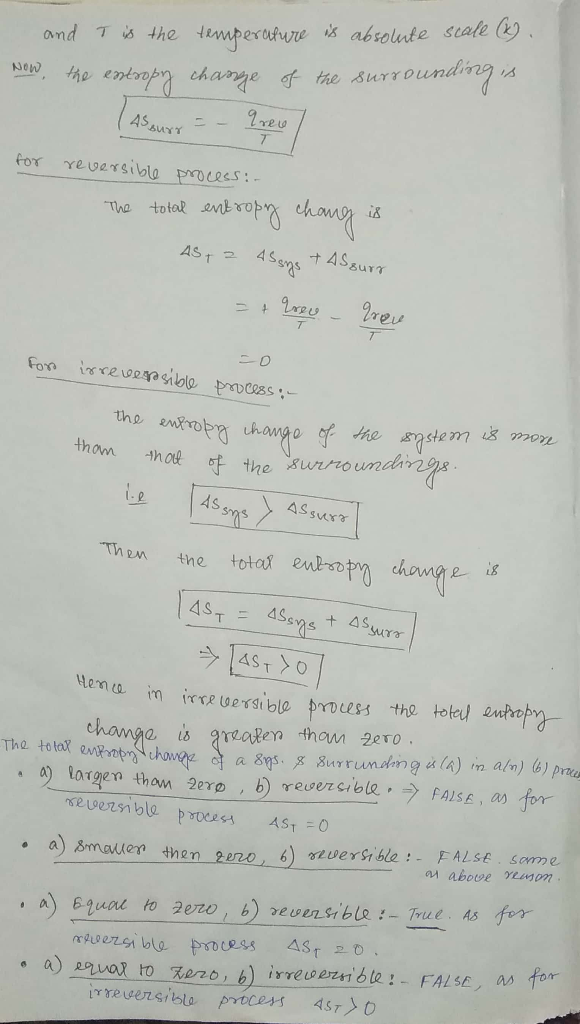 and T is the temperature is absolute scale (K).
Now, the entropy change of the surrounding is
ΔSsurr = - qrev/T
for reversible process:-
The total entropy chang is
ΔS_T = ΔSsys + ΔSsurr
= + qrev/T - qrev/T
= 0
For irreversible process:-
the entropy change of the system is more
than that of the surroundings.
i.e ΔSsys > ΔSsurr
Then the total entropy change is
ΔS_T = ΔSsys + ΔSsurr
⇒ ΔS_T > 0
Hence in irreversible process the total entropy
change is greater than zero.
The total entropy change of a sys. & surrunding is (a) in a(n) (b) proces
• a) larger than zero, b) reversible. ⇒ FALSE, as for
reversible process ΔS_T = 0
• a) smaller then zero, b) reversible :- FALSE. same
as above reason.
• a) Equal to zero, b) reversible :- True. As for
reversible process ΔS_T = 0.
• a) equal to zero, b) irreversible :- FALSE, as for
irreversible process ΔS_T > 0